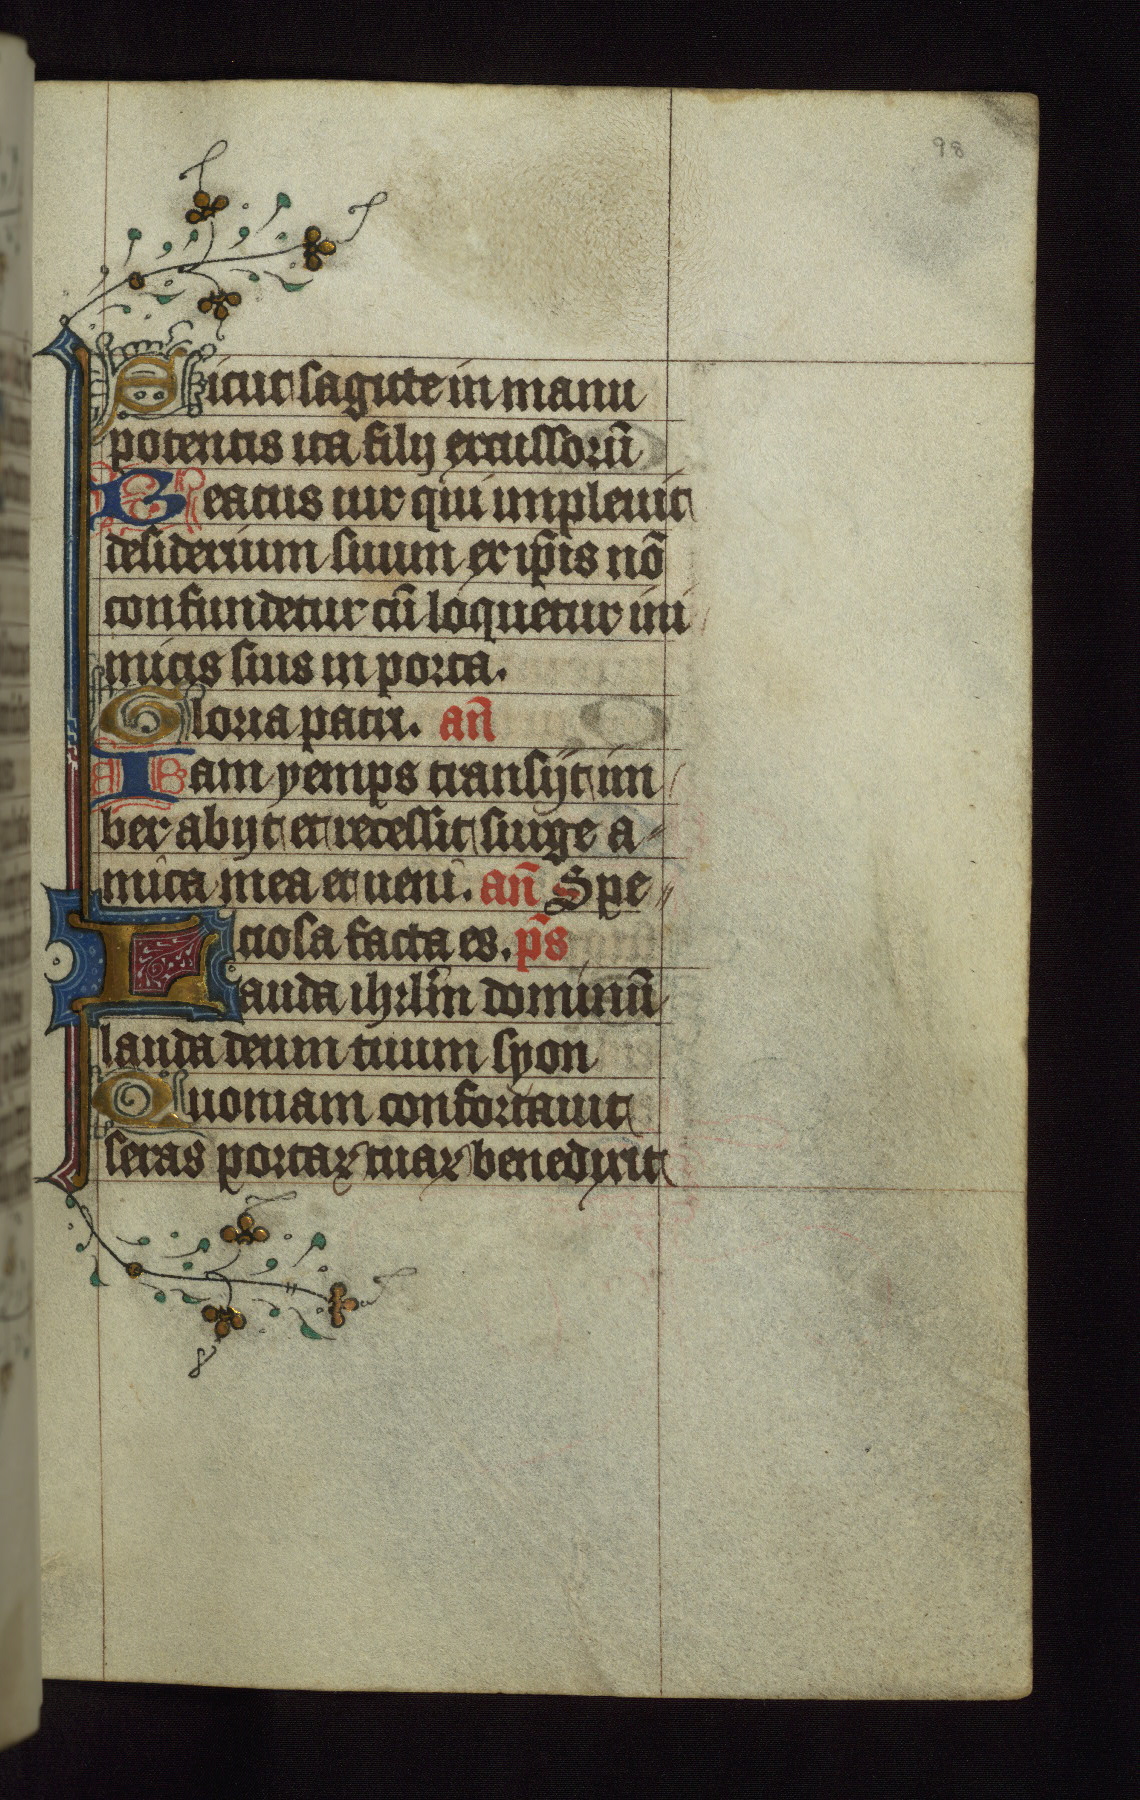 98
Sicut sagitte in manu
potentis ita filij excussorū
Beatus uir qui impleuit
desiderium suum ex ip̄is nō
confundetur cū loquetur ini
micis suis in porta.
Gloria patri. an̄
Iam yemps transijt im
ber abijt et recessit surge a-
mica mea et ueni. an̄ Spe
ciosa facta es. p̄s
Lauda ihrlm̄ dominū
lauda deum tuum syon
Quoniam confortauit
seras portaꝝ tuaꝝ benedixit